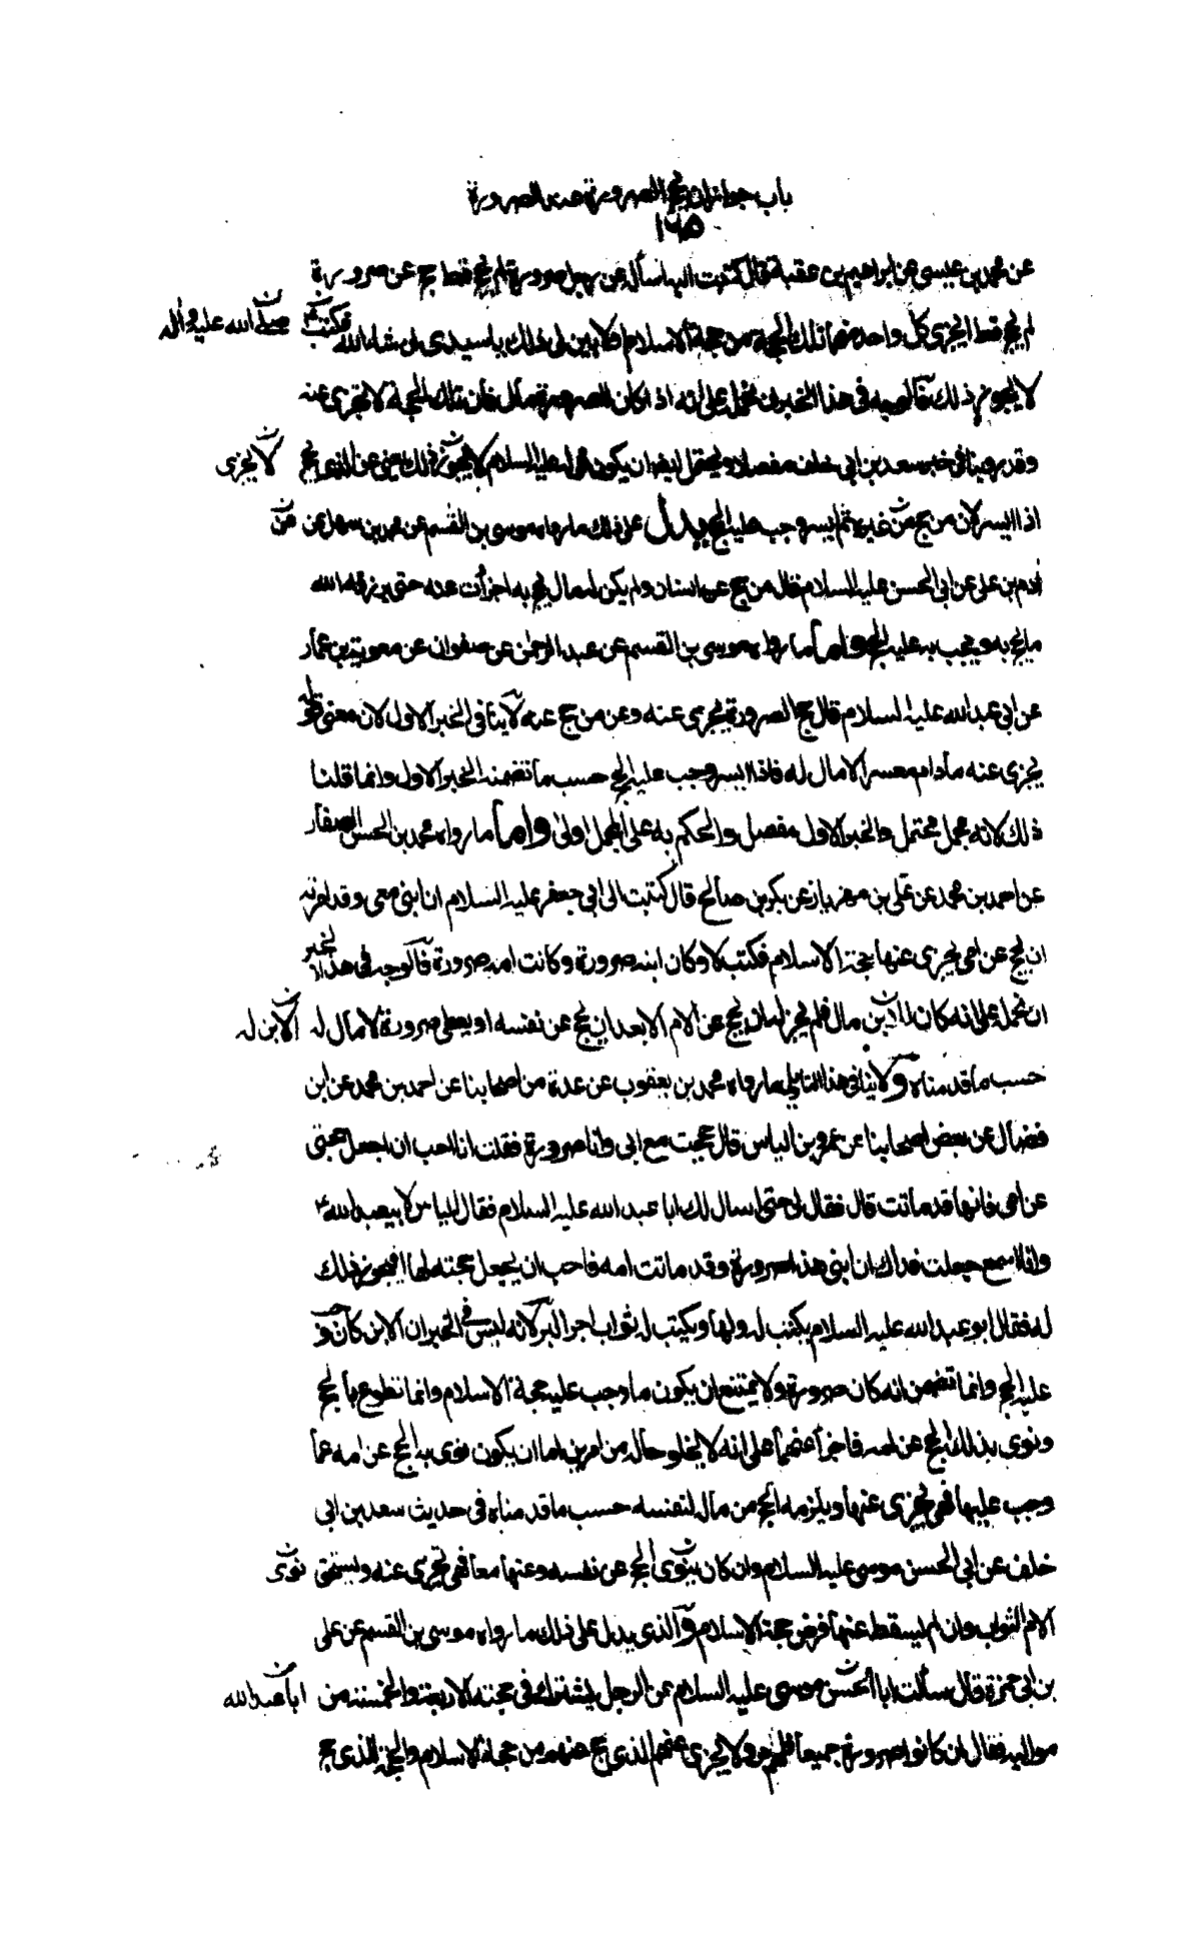 باب جواز ان يحج الصرورة عن الصرورة
١٦٥
عن محمد بن عيسى عن ابراهيم بن عقبة قال كتبت اليه اسأله عن رجل صرورة لم يحج قط حج عن صرورة
لم يحج قط ايجزى كل واحد منهما تلك الحجة من حجة الاسلام او لا بين لى ذلك يا سيدى ان شاء الله فكتب صلى الله عليه واله
لا يجوز ذلك فالوجه فى هذا الخبر ان نحمله على انه اذا كان للصرورة مال فان تلك الحجة لا تجزى عنه
وقد روينا فى خبر سعد بن ابى خلف مفصلا ويحتمل ايضا ان يكون قوله عليه السلام لا يجوز ذلك يعنى عن الذى يحج لا يجزى
اذا ايسر لان من حج من غيره ثم ايسر وجب عليه الحج يدل على ذلك ما رواه موسى بن القسم عن محمد بن سهل عن عن
آدم بن على عن ابى الحسن عليه السلام قال من حج عن انسان ولم يكن له مال يحج به اجزأت عنه حتى يرزقه الله
ما يحج به ويجب به عليه الحج واما ما رواه موسى بن القسم عن عبد الرحمن عن صفوان عن معوية بن عمار
عن ابى عبد الله عليه السلام قال حج الصرورة يجزى عنه وعن من حج عنه لا ينافى الخبر الاول لان معنى قوله
يجزى عنه ما دام معسرا لا مال له فاذا ايسر وجب عليه الحج حسب ما تضمنه الخبر الاول وانما قلنا
ذلك لانه مجمل محتمل والخبر الاول مفصل والحكم به على المجمل اولى واما ما رواه محمد بن الحسن الصفار
عن احمد بن محمد عن على بن مهزيار عن بكر بن صالح قال كتبت الى ابى جعفر عليه السلام ان ابنى معى وقد امرته
ان يحج عن امى يجزى عنها حجة الاسلام فكتب لا وكان ابنه صرورة وكانت امه صرورة فالوجه فى هذا الخبر
ان نحمله على انه كان للابن مال فلم يجز له ان يحج عن الام الا بعد ان يحج عن نفسه او يعطى صرورة لا مال له الابن له
حسب ما قدمناه ولا ينافى هذا التاويل ما رواه محمد بن يعقوب عن عدة من اصحابنا عن احمد بن محمد عن ابن
فضال عن بعض اصحابنا عن عمرو بن الياس قال حججت مع ابى وانا صرورة فقلت انا احب ان اجعل حجتى
عن امى فانها قد ماتت قال فقال لى حتى اسال لك ابا عبد الله عليه السلام فقال الياس لابى عبد الله
وانا اسمع جعلت فداك ان ابنى هذا صرورة وقد ماتت امه فاحب ان يجعل حجته لها افيجوز ذلك
له فقال ابو عبد الله عليه السلام يكتب له ولها ويكتب له ثواب اجر البر لانه ليس فى الخبر ان الابن كان وجب
عليه الحج وانما تضمن انه كان صرورة ولا يمتنع ان يكون ما وجب عليه حجة الاسلام وانما تطوع بالحج
ونوى بذلك الحج عن امه فاجزأ عنهما على انه لا يخلو حاله من امرين اما ان يكون نوى به الحج عن امه عما
وجب عليها فهى يجزى عنها ويلزمه الحج من ماله لنفسه حسب ما قدمناه فى حديث سعد بن ابى
خلف عن ابى الحسن موسى عليه السلام وان كان ينوى الحج عن نفسه وعنها معا فهى تجزى عنه ويستحق نوى
الام الثواب وان لم يسقط عنها فرض حجة الاسلام والذى يدل على ذلك ما رواه موسى بن القسم عن على
بن ابى حمزة قال سألت ابا الحسن موسى عليه السلام عن الرجل يشترك فى حجته الاربعة والخمسة من ابا عبد الله
مواليه فقال ان كانوا صرورة جميعا فلهم اجر ولا يجزى عنهم الذى حج عنهم من حجة الاسلام والحجة للذى حج